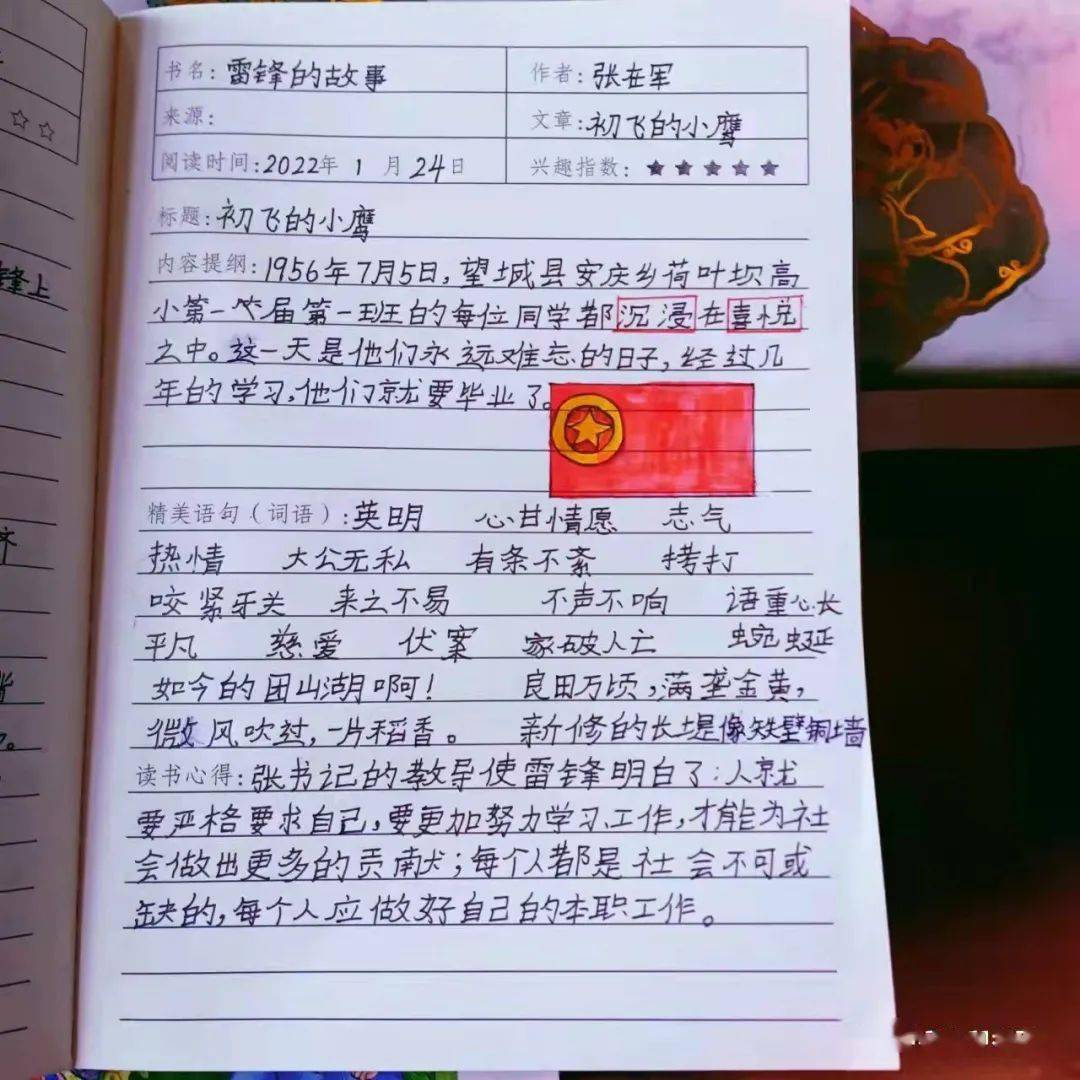 书名：雷锋的故事 作者：张在军
来源： 文章：初飞的小鹰
阅读时间：2022年 1 月 24日 兴趣指数：★★★★★
标题：初飞的小鹰
内容提纲：1956年7月5日，望城县安庆乡荷叶坝高
小第一届第一班的每位同学都沉浸在喜悦
之中。这一天是他们永远难忘的日子，经过几
年的学习，他们就要毕业了。
精美语句（词语）：英明 心甘情愿 志气
热情 大公无私 有条不紊 拷打
咬紧牙关 来之不易 不声不响 语重心长
平凡 慈爱 伏案 家破人亡 蜿蜒
如今的团山湖啊！ 良田万顷，满垄金黄，
微风吹过，一片稻香。 新修的长堤像铁壁铜墙
读书心得：张书记的教导使雷锋明白了：人就
要严格要求自己，要更加努力学习、工作，才能为社
会做出更多的贡献；每个人都是社会不可或
缺的，每个人应做好自己的本职工作。
☆☆
锋上